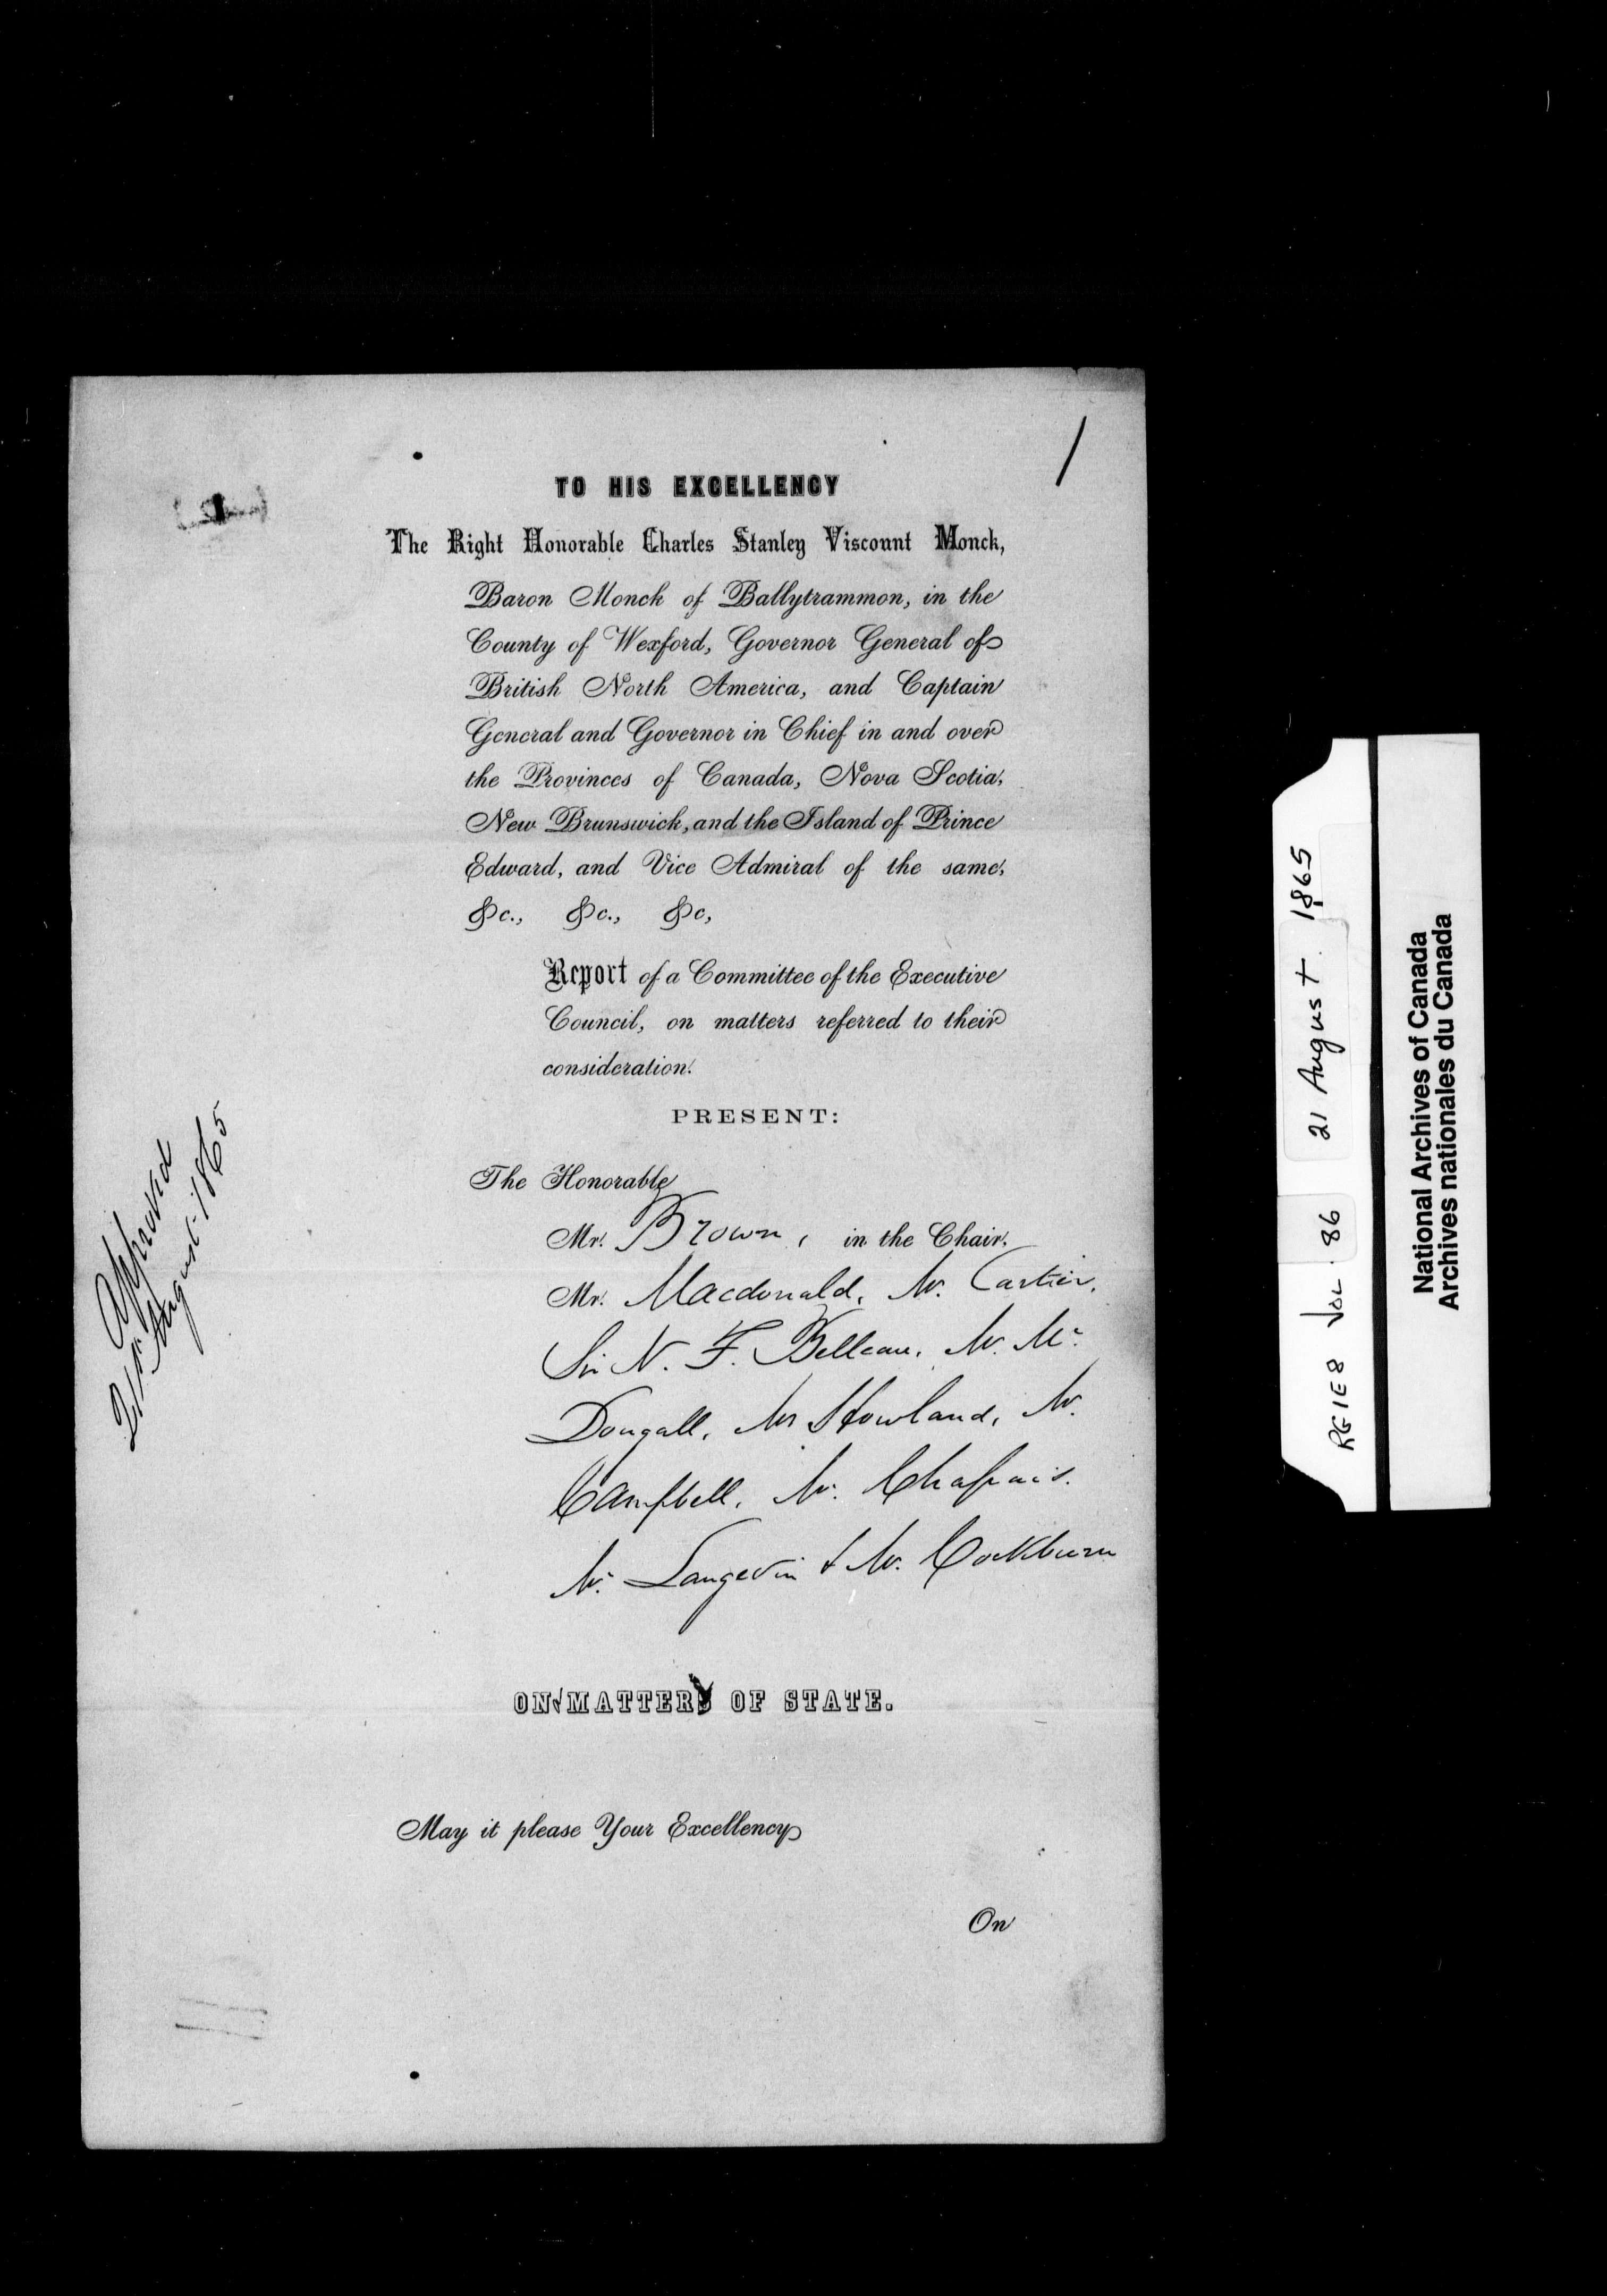 1
TO HIS EXCELLENCY
The Right Honorable Charles Stanley Viscount Monck,
Baron Monck of Ballytrammon, in the
County of Wexford, Governor General of
British North America, and Captain
General and Governor in Chief in and over
the Provinces of Canada, Nova Scotia,
New Brunswick, and the Island of Prince
Edward, and Vice Admiral of the same,
&c., &c., &c,
Report of a Committee of the Executive
Council, on matters referred to their
consideration.
PRESENT:
The Honorable
Mr. Brown, in the Chair.
Mr. Macdonald, Mr. Cartier,
Sir N. F. Belleau, Mr. Mc
Dougall, Mr Howland, Mr.
Campbell, Mr. Chapais.
Mr. Langevin & Mr. Cockburn
ON MATTER OF STATE.
May it please Your Excellency
On
Approved
21st August 1865
RG1E8 VOL. 86 21 August 1865
National Archives of Canada
Archives nationales du Canada